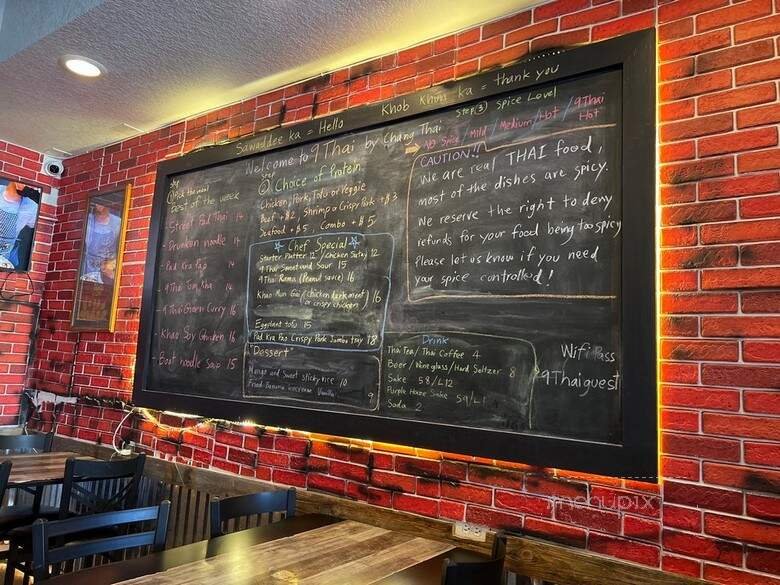 Sawaddee ka = Hello
Khob Khun ka = thank you
Welcome to 9 Thai by Chang Thai
Step
① Pick the meal
Best of the week
- Street Pad Thai 14
- Drunken noodle 14
- Pad Kra Pao 14
- 9 Thai Tom Kha 14
- 9 Thai Green Curry 16
- Khao Soy Chicken 16
- Boat noodle Soup 15
Step
② Choice of Protein
Chicken, Pork, Tofu or Veggie
Beef +$2, Shrimp or Crispy Pork +$3
Seafood +$5, Combo +$5
Chef Special
Starter Platter 12 / chicken Satay 12
9 Thai Sweet and Sour 15
9 Thai Rama (Peanut sauce) 16
Khao Mun Gai (chicken dark meat) 16
or crispy chicken
Eggplant tofu 15
Pad Kra Pao Crispy Pork Jumbo tray 18
"Dessert"
Mango and Sweet sticky rice 10
Fried Banana icecream Vanilla 9
Step ③ Spice Level
No Spice / Mild / Medium / Hot / 9 Thai Hot
CAUTION!!
We are real THAI food,
most of the dishes are spicy.
We reserve the right to deny
refunds for your food being too spicy
Please let us know if you need
your spice controlled!
Drink
Thai Tea / Thai Coffee 4
Beer / Wine glass / Hard Seltzer 8
Sake S8/L12
Purple Haze Sake S9/L
Soda 2
Wifi Pass
9Thaiguest
menupix